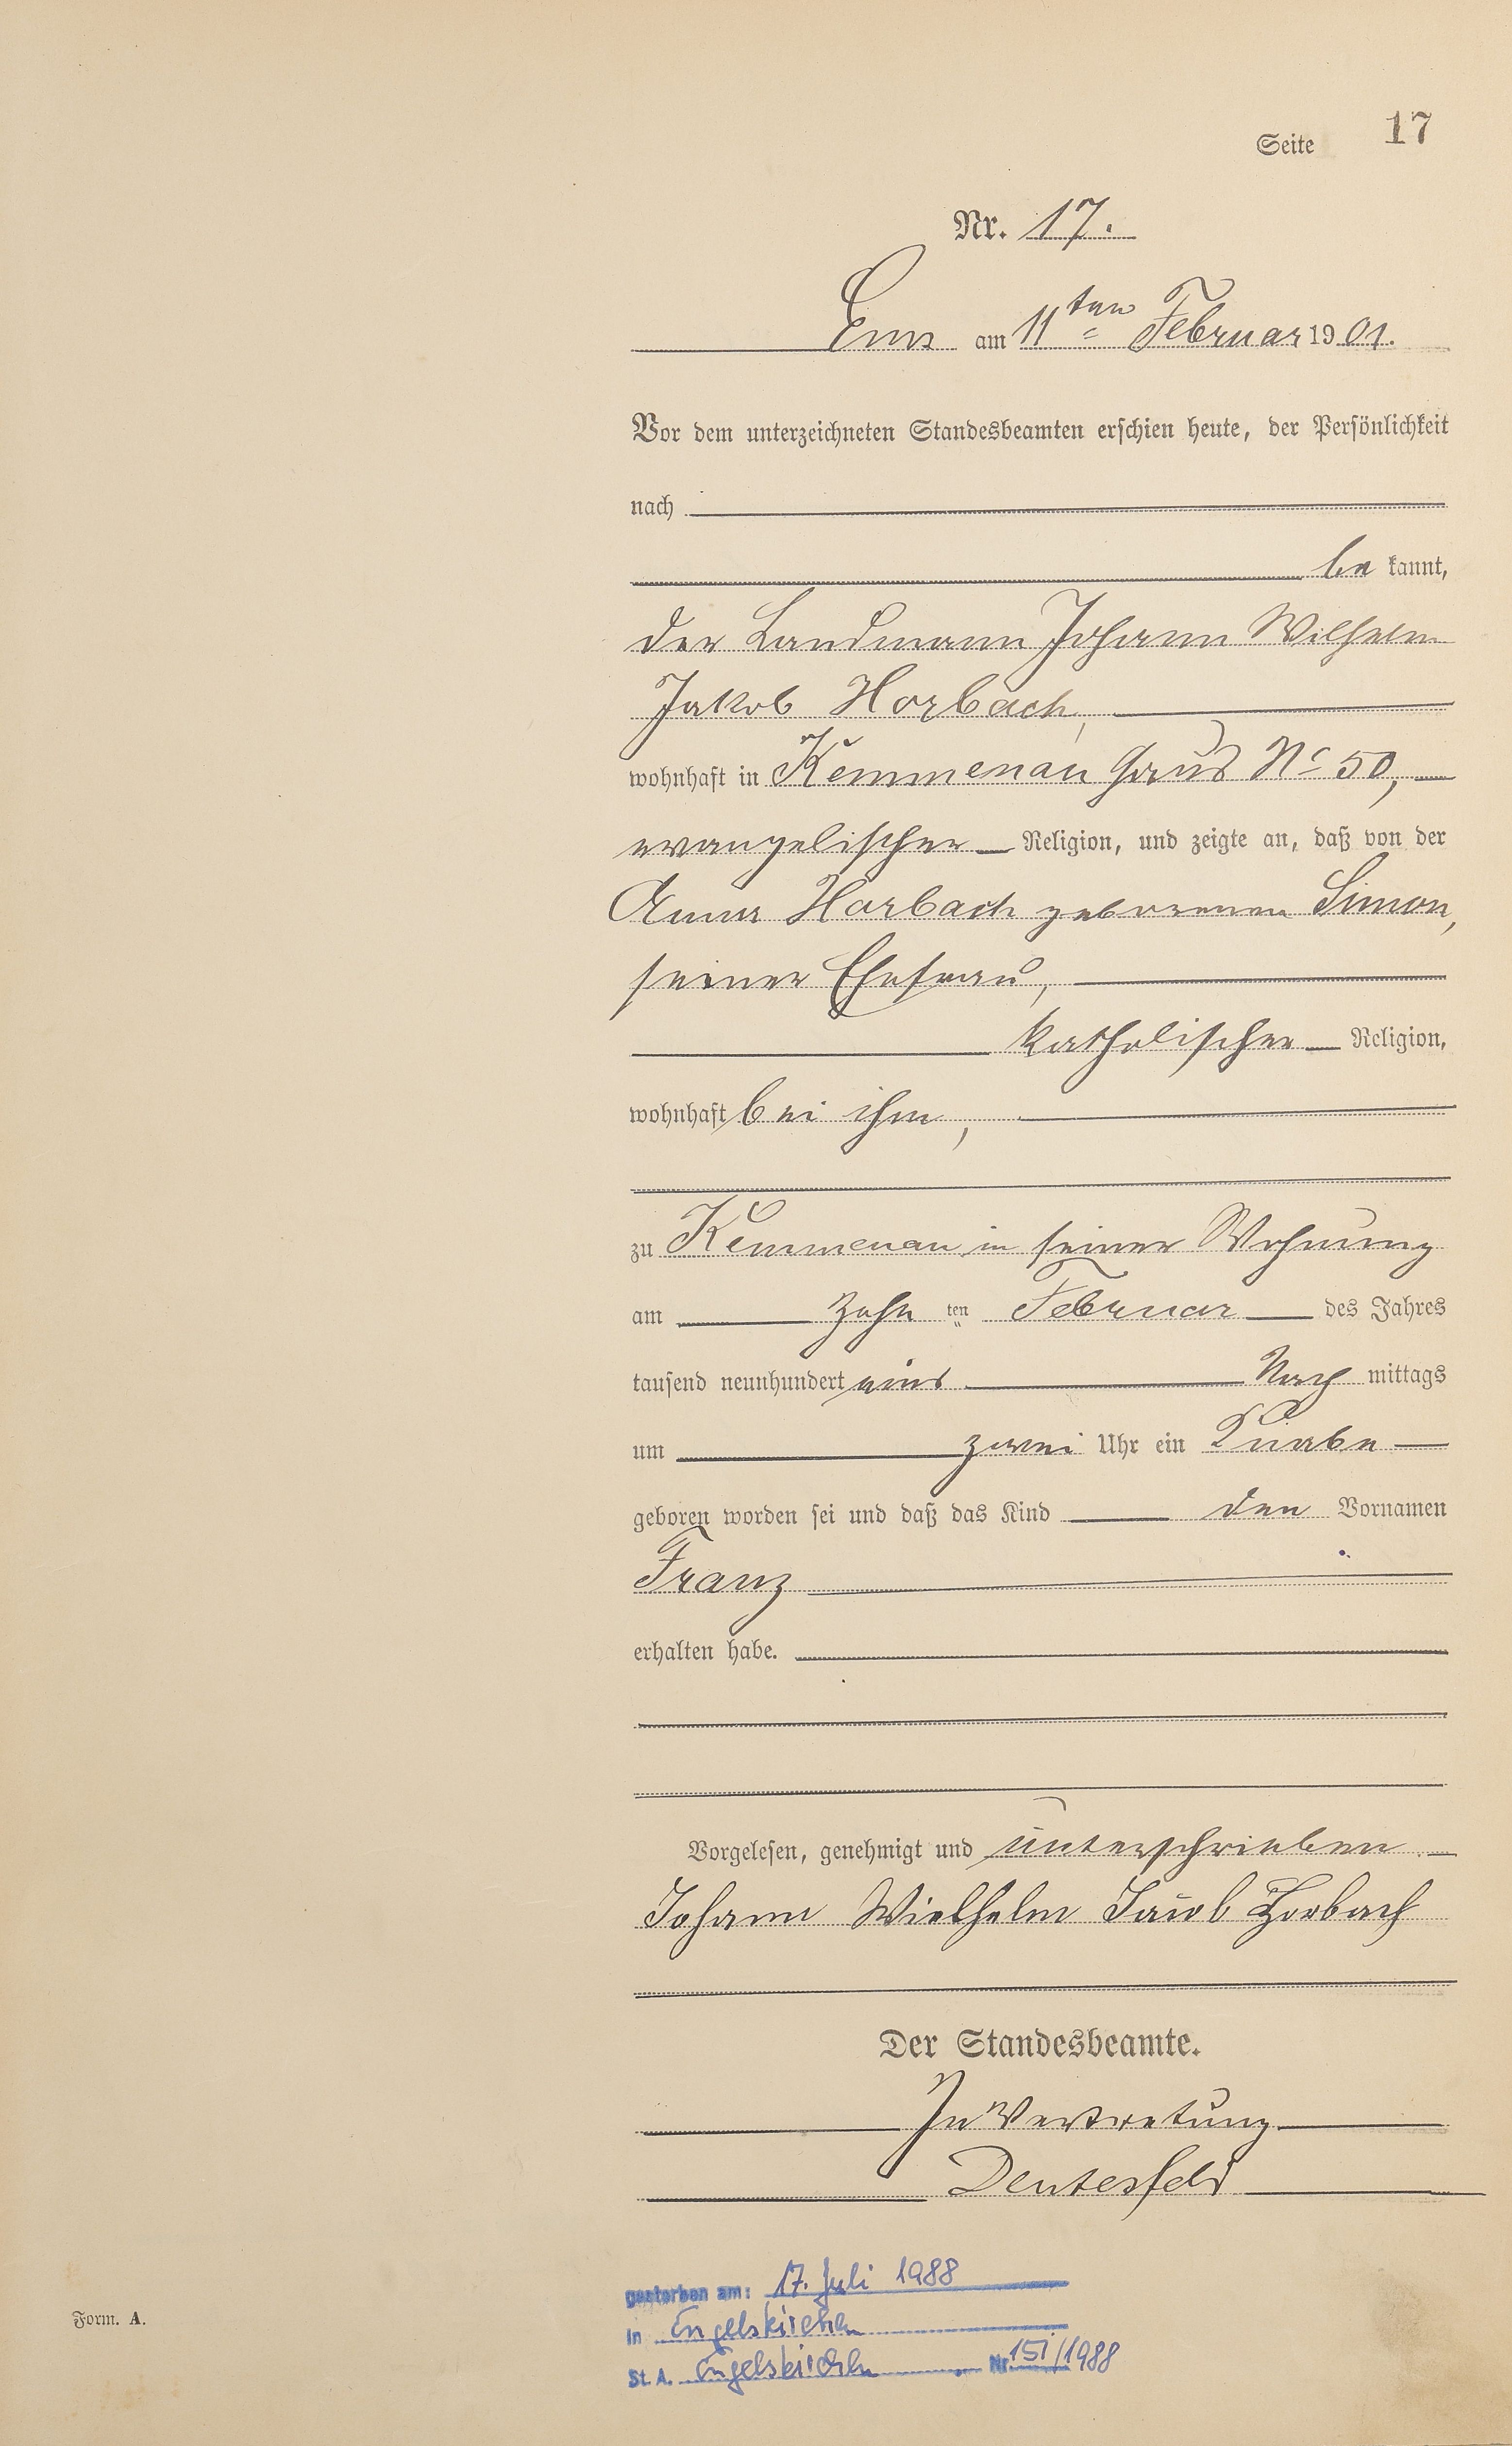 Seite 17
Nr. 17.
Ems am 11ten Februar 1901.
Vor dem unterzeichneten Standesbeamten erschien heute, der Persönlichkeit
nach
be kannt,
der Landmann Johann Wilhelm
Jakob Horbach,
wohnhaft in Kemmenau Haus No 50,
evangelischer Religion, und zeigte an, daß von der
Anna Horbach geborenen Simon,
seiner Ehefrau,
katholischer Religion,
wohnhaft bei ihm,
zu Kemmenau in seiner Wohnung
am zehn ten Februar des Jahres
tausend neunhundert eins Nach mittags
um zwei Uhr ein Knabe
geboren worden sei und daß das Kind den Vornamen
Franz
erhalten habe.
Vorgelesen, genehmigt und unterschrieben
Johann Wielhelm Jacob Horbach
Der Standesbeamte.
In Vertretung
Deutesfeld
gestorben am: 17. Juli 1988
in Engelskirchen
St. A. Engelskirchen Nr. 151/1988
Form. A.